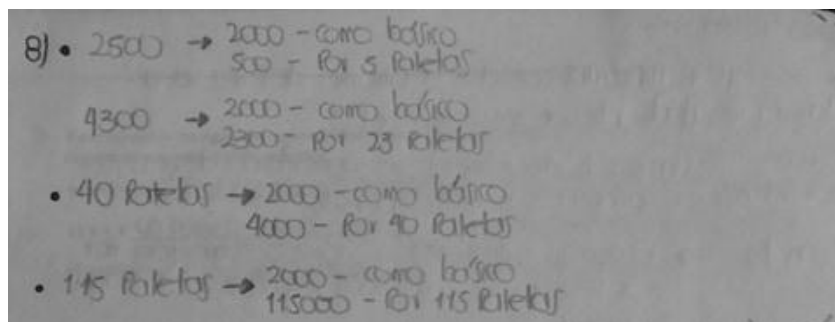 8) • 2500 → 2000 - como básico
500 - Por 5 Paletas
4300 → 2000 - como básico
2300 - Por 23 Paletas
• 40 Paletas → 2000 - como básico
4000 - Por 40 Paletas
• 115 Paletas → 2000 - como básico
115000 - Por 115 Paletas